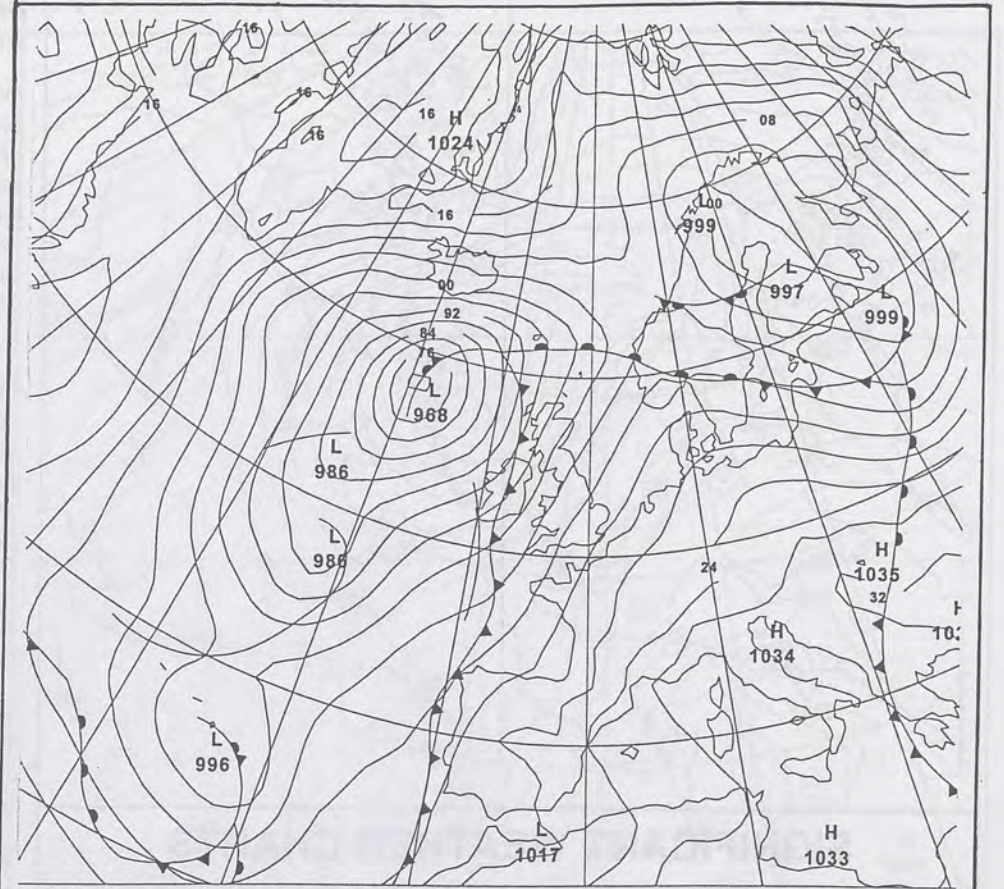 16
16
16
16
16
H
1024
08
16
L00
999
L
997
L
999
00
92
84
76
L
968
L
986
L
986
24
H
1035
32
H
103
H
1034
L
996
L
1017
H
1033